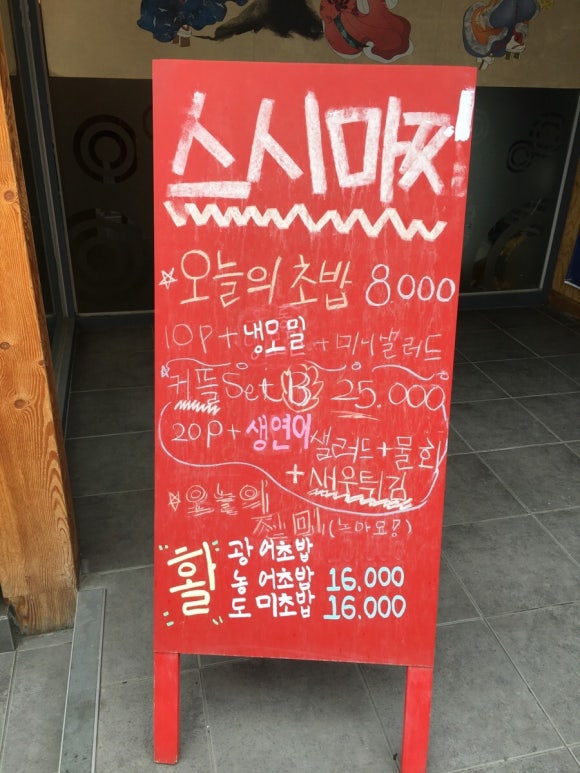 스시마짓
☆오늘의 초밥 8.000
10P + 냉모밀 + 미니샐러드
☆커플 Set B 25.000
20P + 생연어 샐러드 + 물회
+ 새우튀김
☆오늘의
활 광어초밥
농어초밥 16.000
도미초밥 16.000